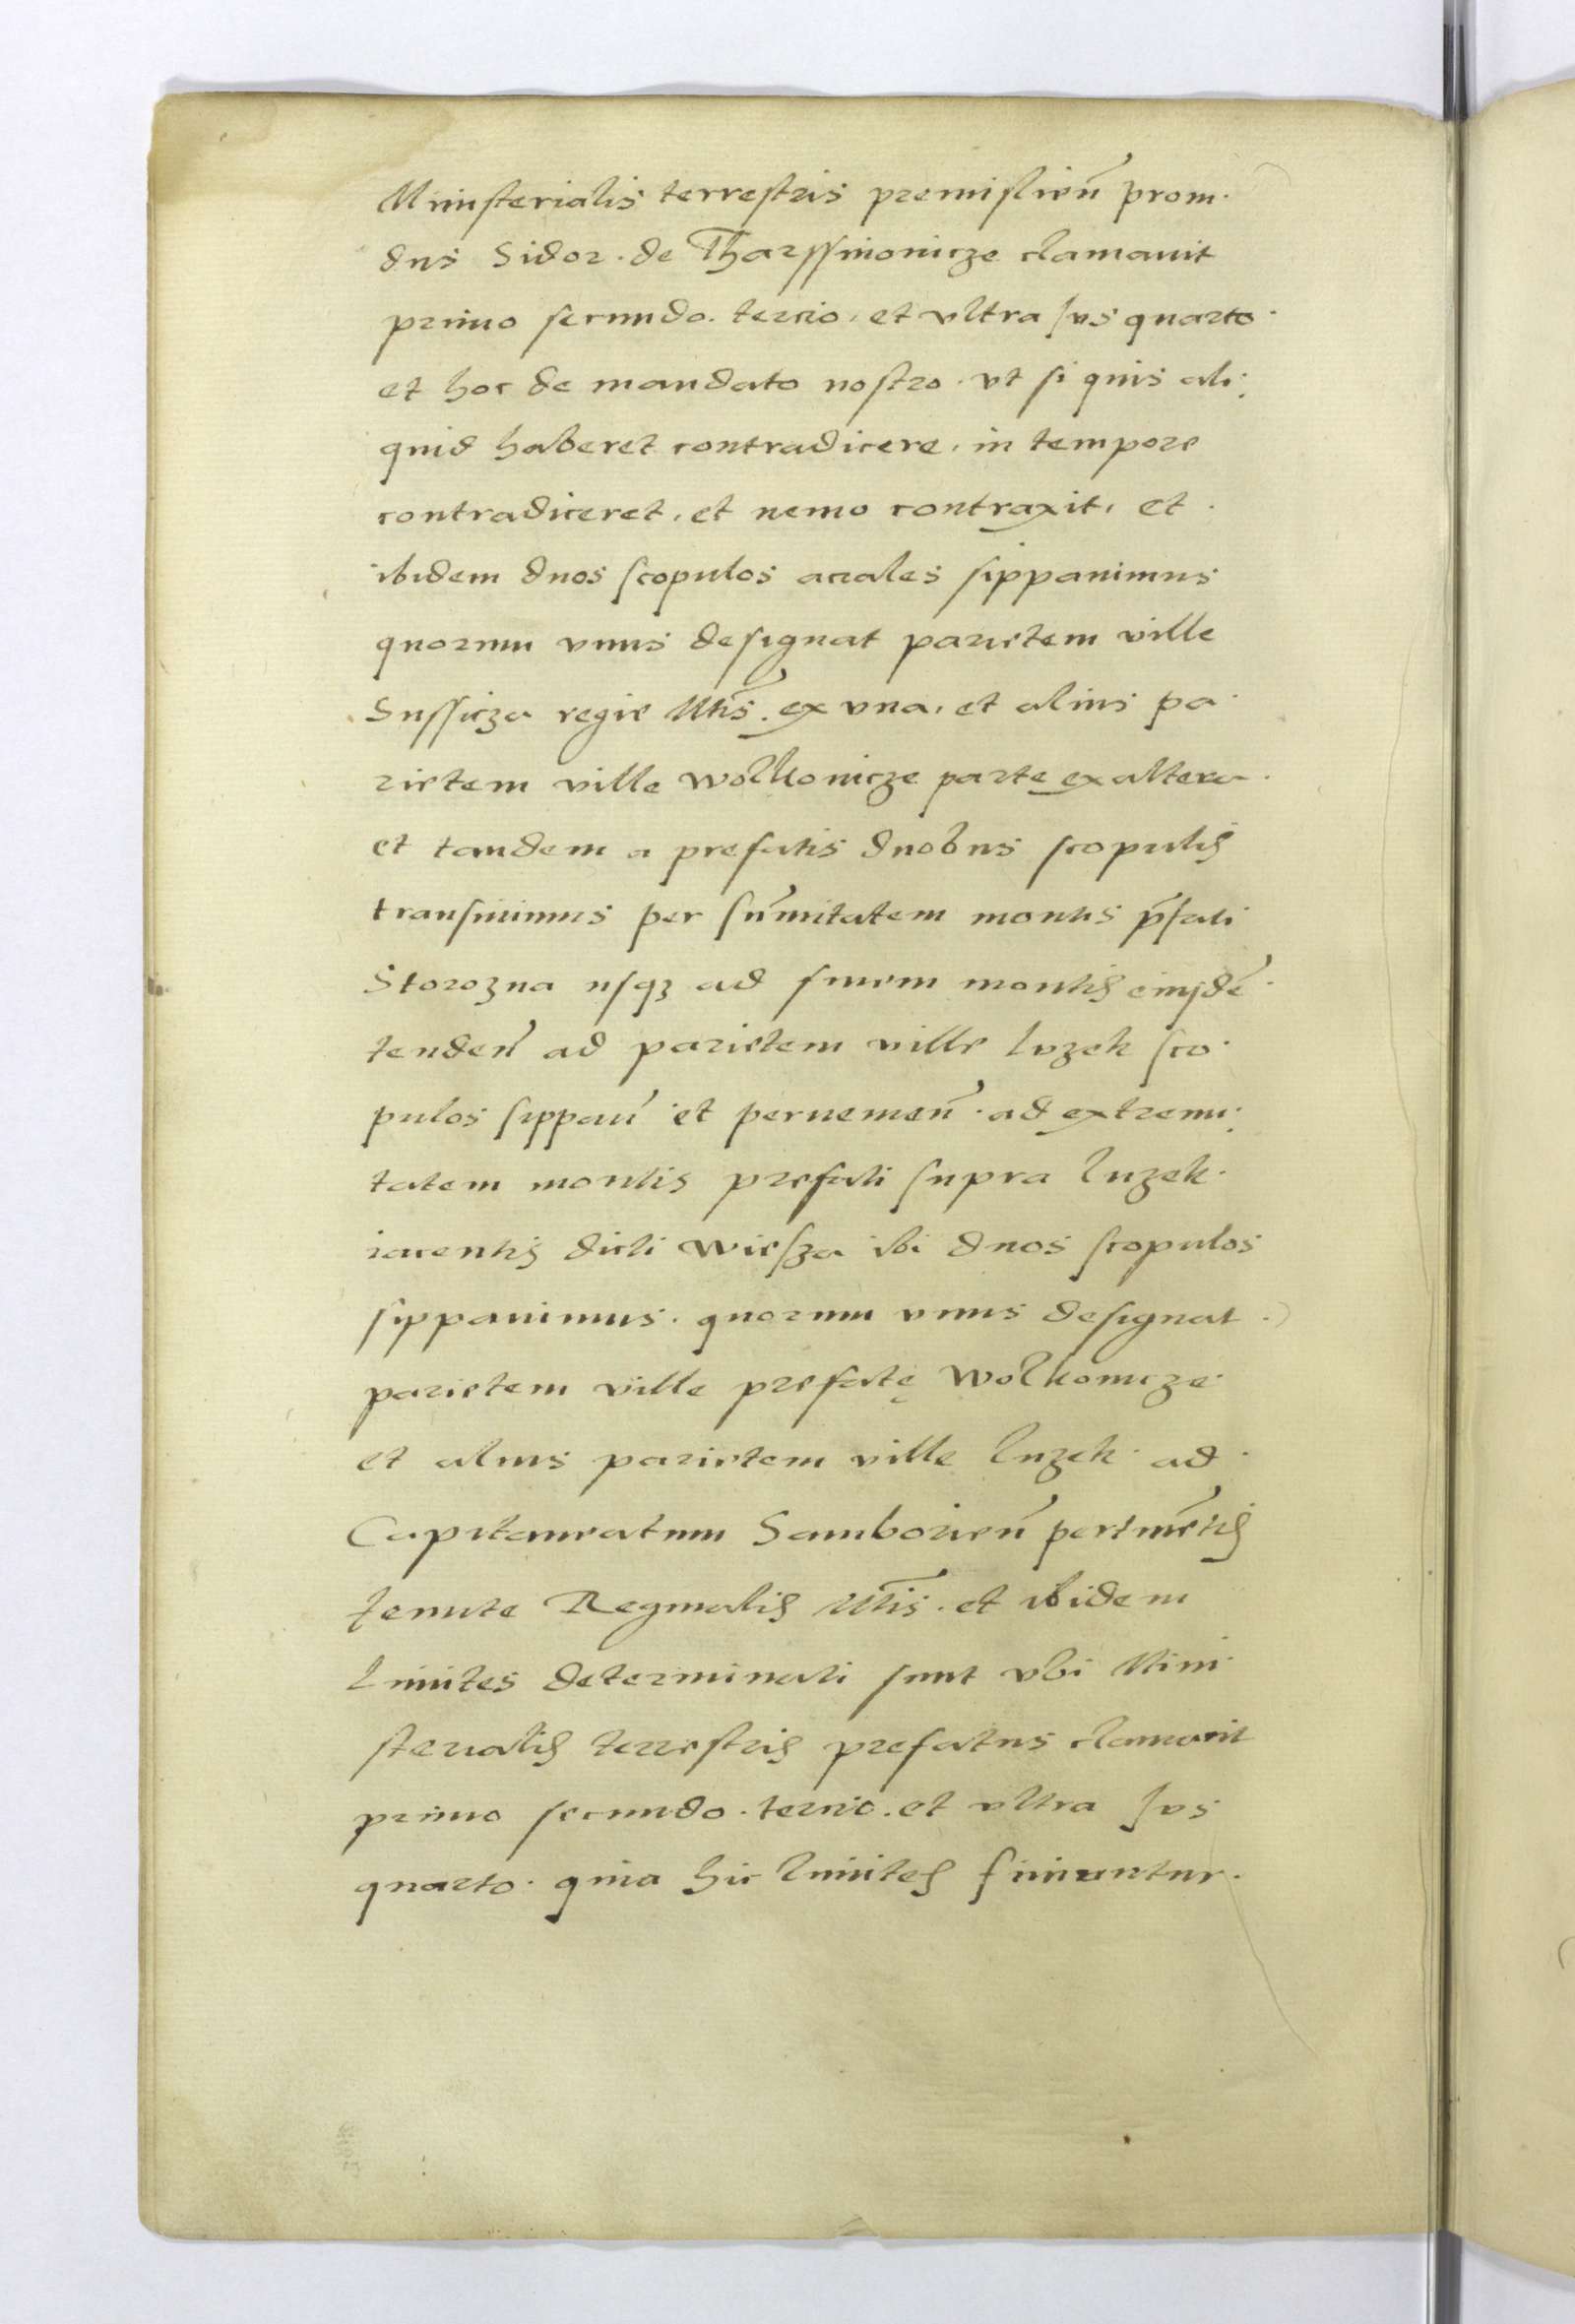 Ministerialis terrestris premislień prom·
dus Sidor· de Tharssinonicze clamauit
primo secundo· tercio· et vltra Jus quarto·
et hoc de mandato nostro· vt si quis ali:
quid haberet contradicere· in tempore
contradiceret· et nemo contraxit· et
ibidem duos scopulos aciales sippauimus
quorum vnus designat parietem ville
Sussicza regie Mtis· ex vna· et alius pa·
rietem ville Wolkonicze parte ex altera·
et tandem a prefatis duobus scopulis
transiuimus per sūmitatem montis p̄fati
Storozna usqz ad finem montis eiusdē·
tendeń ad parietem ville luzek sco·
pulos sippań et peruenień· ad extremi:
tatem montis prefati supra luzek·
iacentis dicti Wiesza ibi duos scopulos
sippauimus· quorum vnus designat·
parietem ville prefatę Wolkonicze·
et alius parietem ville luzek· ad·
Capitaneatum Samborień pertinētis
tenute Reginalis Mtis· et ibidem
Limites determinati sunt vbi Mini·
sterialis terrestris prefatus clamauit
primo secundo· tercio· et vltra Jus
quarto· quia hic limites finiuntur·